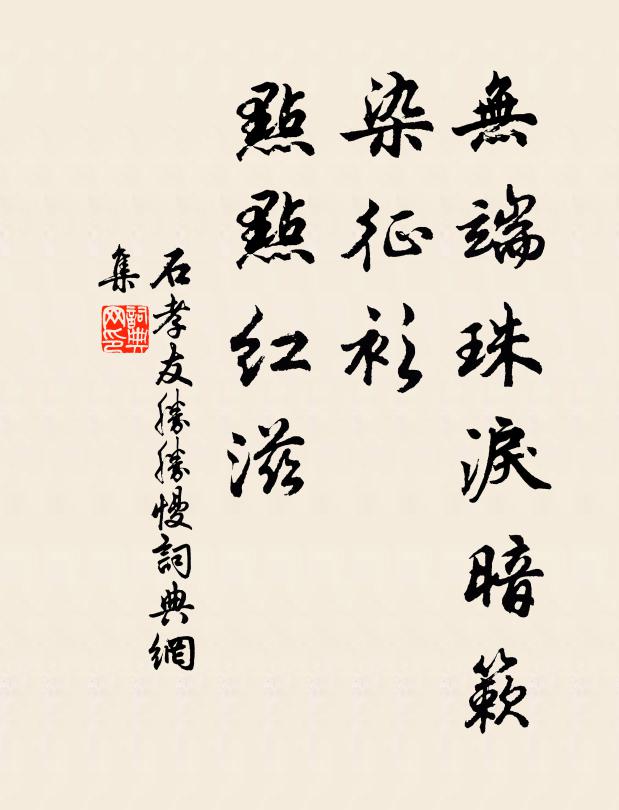 無端珠淚暗簌
染征衫
點點紅滋
石孝友勝勝慢詞典網
集
詞典
网印